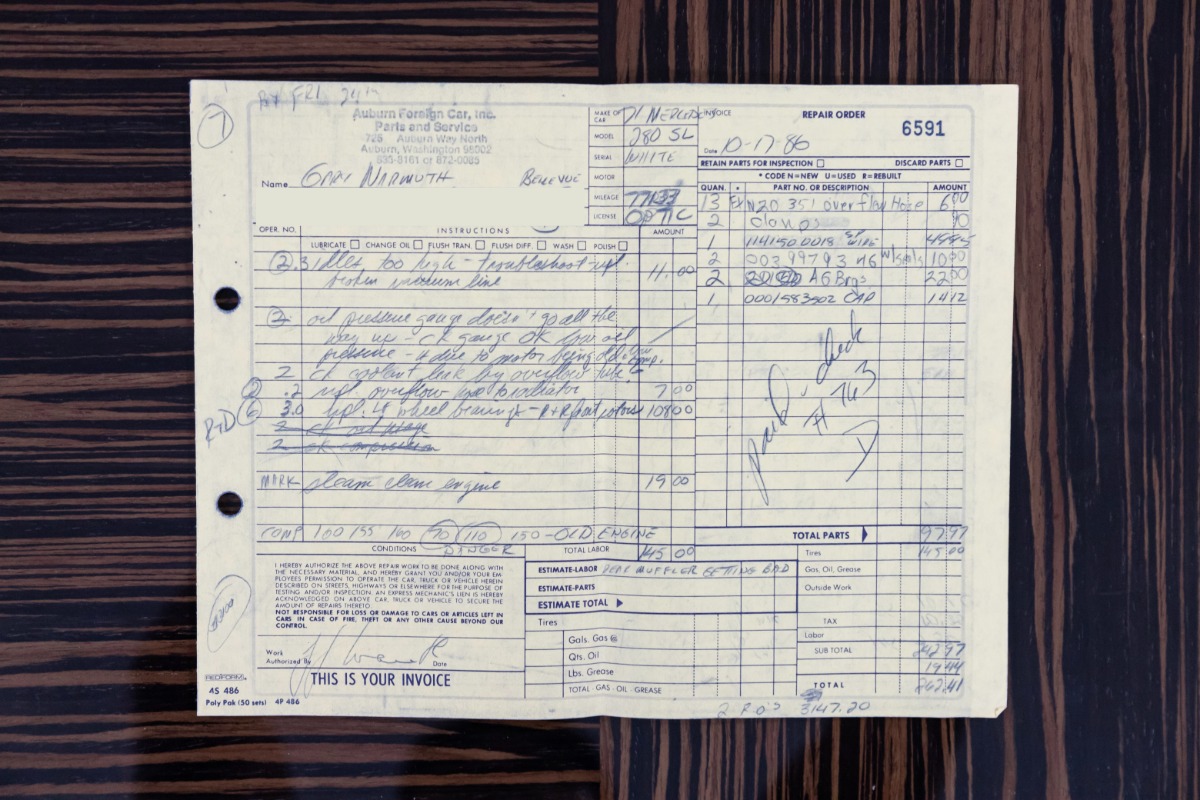 BY FRI 24th
7
Auburn Foreign Car, Inc.
Parts and Service
725 Auburn Way North
Auburn, Washington 98002
833-8161 or 872-0085
Name GARY BELLEVUE
MAKE OF CAR 71 MERCEDES
MODEL 280 SL
SERIAL WHITE
MOTOR
MILEAGE
LICENSE OPTIC
INVOICE REPAIR ORDER
6591
Date 10-17-86
RETAIN PARTS FOR INSPECTION DISCARD PARTS
* CODE N=NEW U=USED R=REBUILT
QUAN. * PART NO. OR DESCRIPTION AMOUNT
13 N20 351 overflow Hose 6 00
2 clamps 90
1 1141500018 SP WIRE
2 003 99793 46 w/seals 10 00
2 A6 Brgs 22 00
1 0001583502 CAP 14 12
paid check
# 763
OPER. NO. INSTRUCTIONS AMOUNT
LUBRICATE CHANGE OIL FLUSH TRAN. FLUSH DIFF. WASH POLISH
2 .3 idles too high - troubleshoot - rpl 11.00
broken vacuum line
2 oil pressure gauge doesn't go all the
way up - ck gauge OK low oil
pressure - due to motor being old & low comp.
2 ck coolant leak by overflow tube
2 .2 rpl overflow hose to radiator 7 00
R+D 6 3.0 rpl. 4 wheel bearings - R+R front rotors 108 00
2 ck oil usage
2 ck compression
MARK steam clean engine 19 00
COMP 100 155 160 90 110 150 - OLD ENGINE
DANGER
CONDITIONS
I HEREBY AUTHORIZE THE ABOVE REPAIR WORK TO BE DONE ALONG WITH
THE NECESSARY MATERIAL, AND HEREBY GRANT YOU AND/OR YOUR EM-
PLOYEES PERMISSION TO OPERATE THE CAR, TRUCK OR VEHICLE HEREIN
DESCRIBED ON STREETS, HIGHWAYS OR ELSEWHERE FOR THE PURPOSE OF
TESTING AND/OR INSPECTION. AN EXPRESS MECHANIC'S LIEN IS HEREBY
ACKNOWLEDGED ON ABOVE CAR, TRUCK OR VEHICLE TO SECURE THE
AMOUNT OF REPAIRS THERETO.
NOT RESPONSIBLE FOR LOSS OR DAMAGE TO CARS OR ARTICLES LEFT IN
CARS IN CASE OF FIRE, THEFT OR ANY OTHER CAUSE BEYOND OUR
CONTROL.
Work
Authorized By Date
THIS IS YOUR INVOICE
REDIFORM
4S 486
Poly Pak (50 sets) 4P 486
TOTAL LABOR 145 00
ESTIMATE-LABOR REAR MUFFLER GETTING BAD
ESTIMATE-PARTS
ESTIMATE TOTAL
Tires
Gals. Gas @
Qts. Oil
Lbs. Grease
TOTAL - GAS - OIL - GREASE
TOTAL PARTS 97.97
Tires 145 00
Gas, Oil, Grease
Outside Work
TAX
Labor
SUB TOTAL 242.97
19.44
TOTAL 262.41
2 R.O's 3147.20